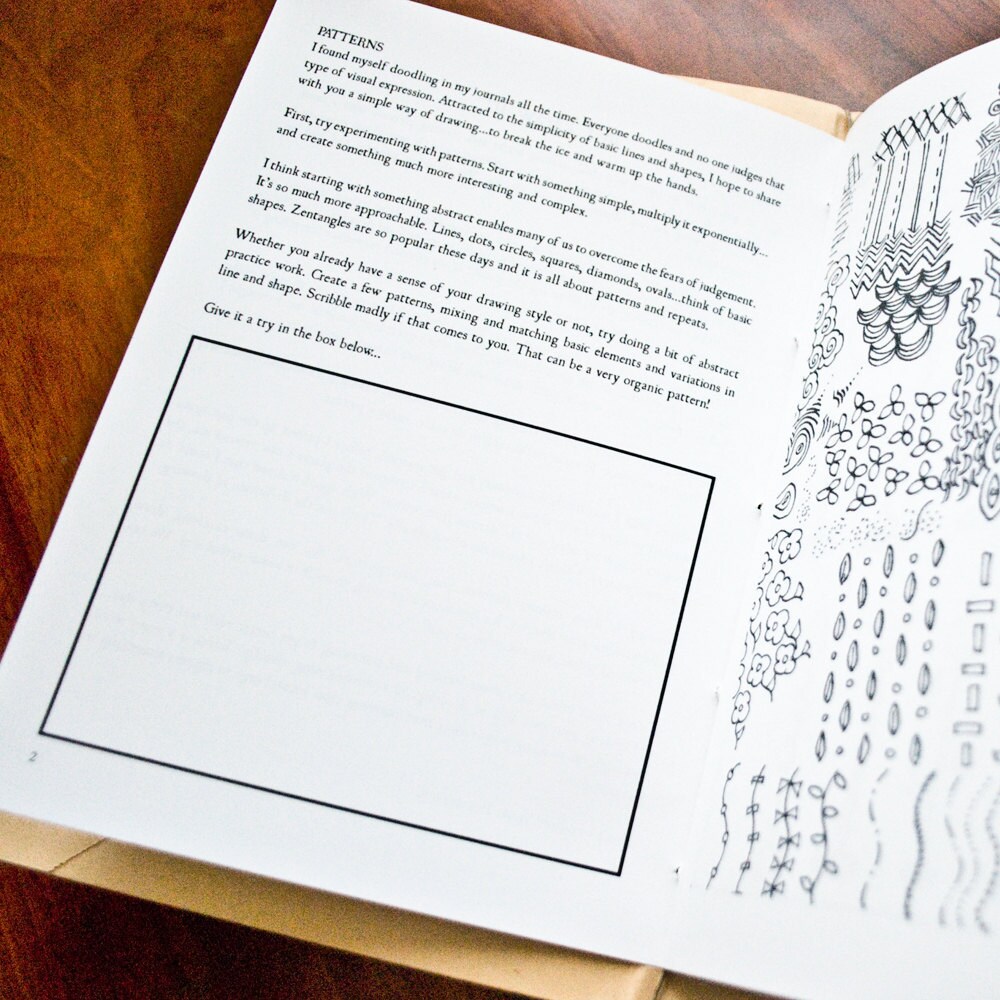 PATTERNS
I found myself doodling in my journals all the time. Everyone doodles and no one judges that
type of visual expression. Attracted to the simplicity of basic lines and shapes, I hope to share
with you a simple way of drawing...to break the ice and warm up the hands.
First, try experimenting with patterns. Start with something simple, multiply it exponentially...
and create something much more interesting and complex.
I think starting with something abstract enables many of us to overcome the fears of judgement.
It's so much more approachable. Lines, dots, circles, squares, diamonds, ovals...think of basic
shapes. Zentangles are so popular these days and it is all about patterns and repeats.
Whether you already have a sense of your drawing style or not, try doing a bit of abstract
practice work. Create a few patterns, mixing and matching basic elements and variations in
line and shape. Scribble madly if that comes to you. That can be a very organic pattern!
Give it a try in the box below...
2